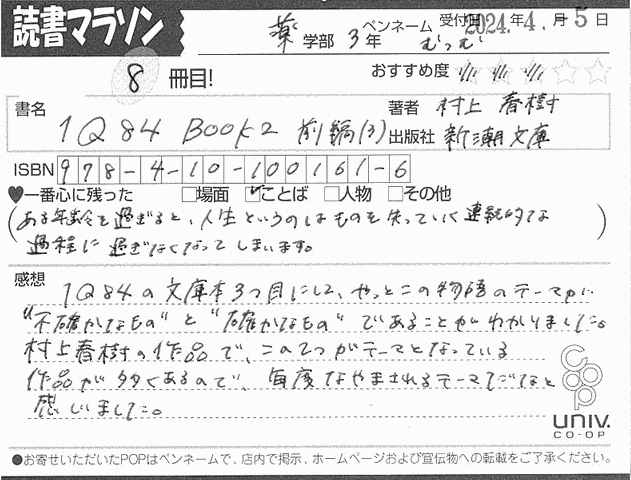 読書マラソン
薬 学部 3年 ペンネーム むつむ 受付日 2024.年4.月5日
8 冊目! おすすめ度 ☆☆☆☆☆
書名 1Q84 BOOK2 前編(3)
著者 村上 春樹
出版社 新潮文庫
ISBN 978-4-10-100161-6
♥一番心に残った □場面 ☑ことば □人物 □その他
(ある年齢を過ぎると、人生というのはものを失っていく連続的な
過程に過ぎなくなってしまいます。)
感想 1Q84の文庫本3つ目にして、やっとこの物語のテーマが
"不確かなもの"と"確かなもの"であることがわかりました。
村上春樹の作品で、この2つがテーマとなっている
作品が多くあるので、毎度なやまされるテーマだなと
感じました。
univ.
CO-OP
●お寄せいただいたPOPはペンネームで、店内で掲示、ホームページおよび宣伝物への転載をご了承ください。